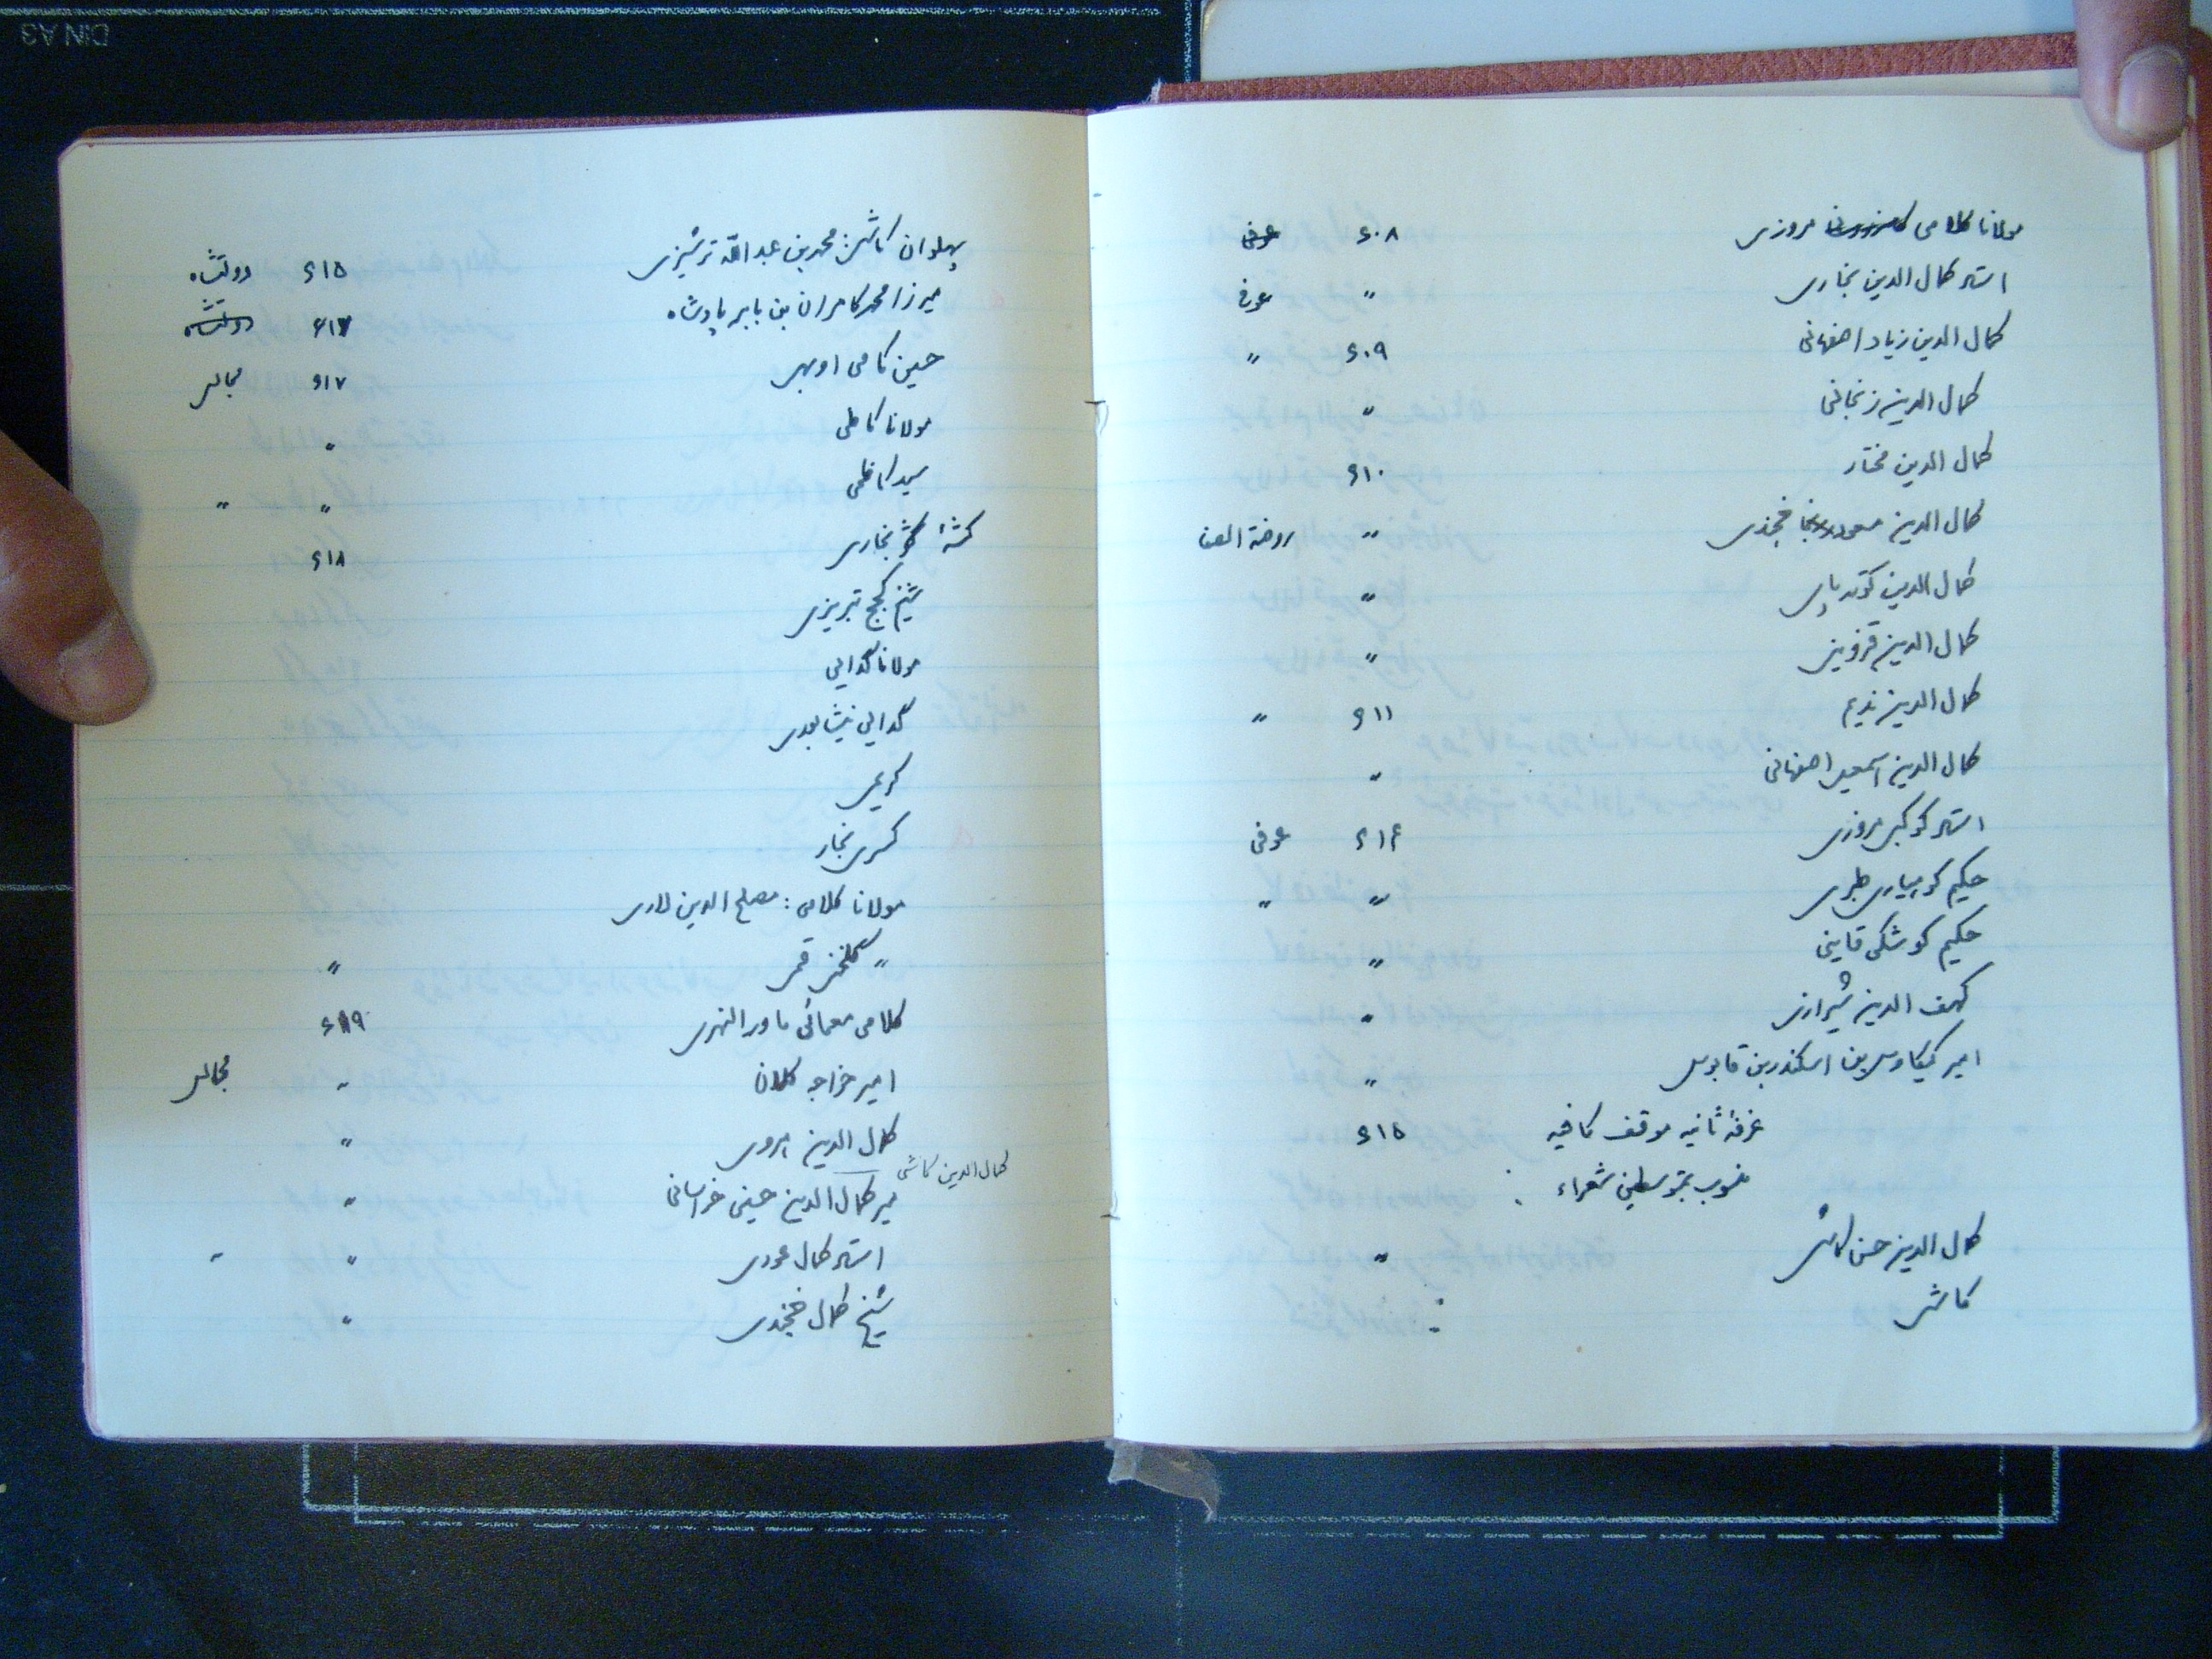 مولانا کلامی مروزی ۶۰۸ عوفی
استاد کمال الدین بخاری " عوفی
کمال الدین زیاد اصفهانی ۶۰۹ "
کمال الدین زنجانی "
کمال الدین مختار ۶۱۰
کمال الدین مسعود خجندی " روضة الصفا
کمال الدین کوتاه پای "
کمال الدین قزوینی "
کمال الدین ندیم ۶۱۱ "
کمال الدین اسمعیل اصفهانی "
استاد کوکبی مروزی ۶۱۴ عوفی
حکیم کوبیاری طبری " "
حکیم کوشکی قاینی "
کهف الدین شیرازی "
امیر کیکاوس بن اسکندر بن قابوس "
غرفهٔ ثانیه موقف کافیه ۶۱۵
منسوب بمتوسطین شعراء :
کمال الدین حسن کاشی "
کاشی
پهلوان کاتبی: محمد بن عبدالله ترشیزی ۶۱۵ دولتشاه
میرزا محمد کامران بن بابر پادشاه ۶۱۷ دولتشاه
حسین کامی اوبهی ۶۱۷ مجالس
مولانا کاملی "
سید کاظمی " "
کشتهٔ بخاری ۶۱۸
شیخ کجج تبریزی
مولانا گدایی
گدایی نیشابوری
کریمی
کسری نجار
مولانا کلامی: مصلح الدین لاری
" گلخنی قمی "
کلامی معمائی ماوراالنهری ۶۱۹
امیر خواجه کلان " مجالس
کمال الدین هروی "
کمال الدین کاشی
میر کمال الدین حسینی خراسانی "
استاد کمال عودی " "
شیخ کمال خجندی "